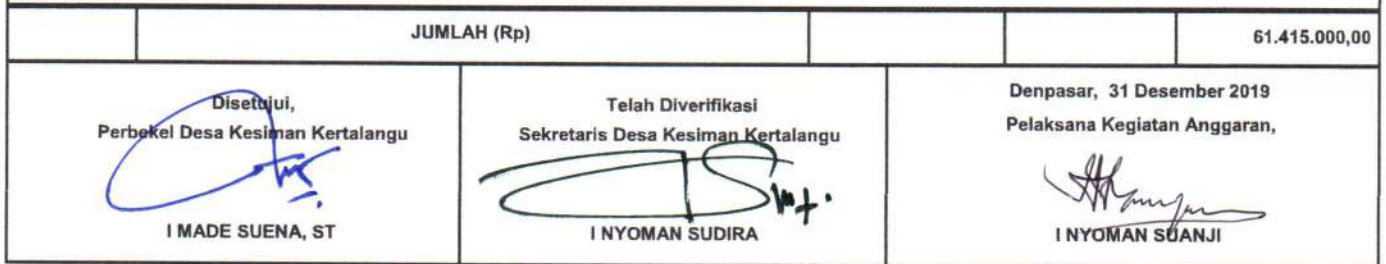 JUMLAH (Rp) 61.415.000,00
Disetujui,
Perbekel Desa Kesiman Kertalangu
I MADE SUENA, ST
Telah Diverifikasi
Sekretaris Desa Kesiman Kertalangu
I NYOMAN SUDIRA
Denpasar, 31 Desember 2019
Pelaksana Kegiatan Anggaran,
I NYOMAN SUANJI